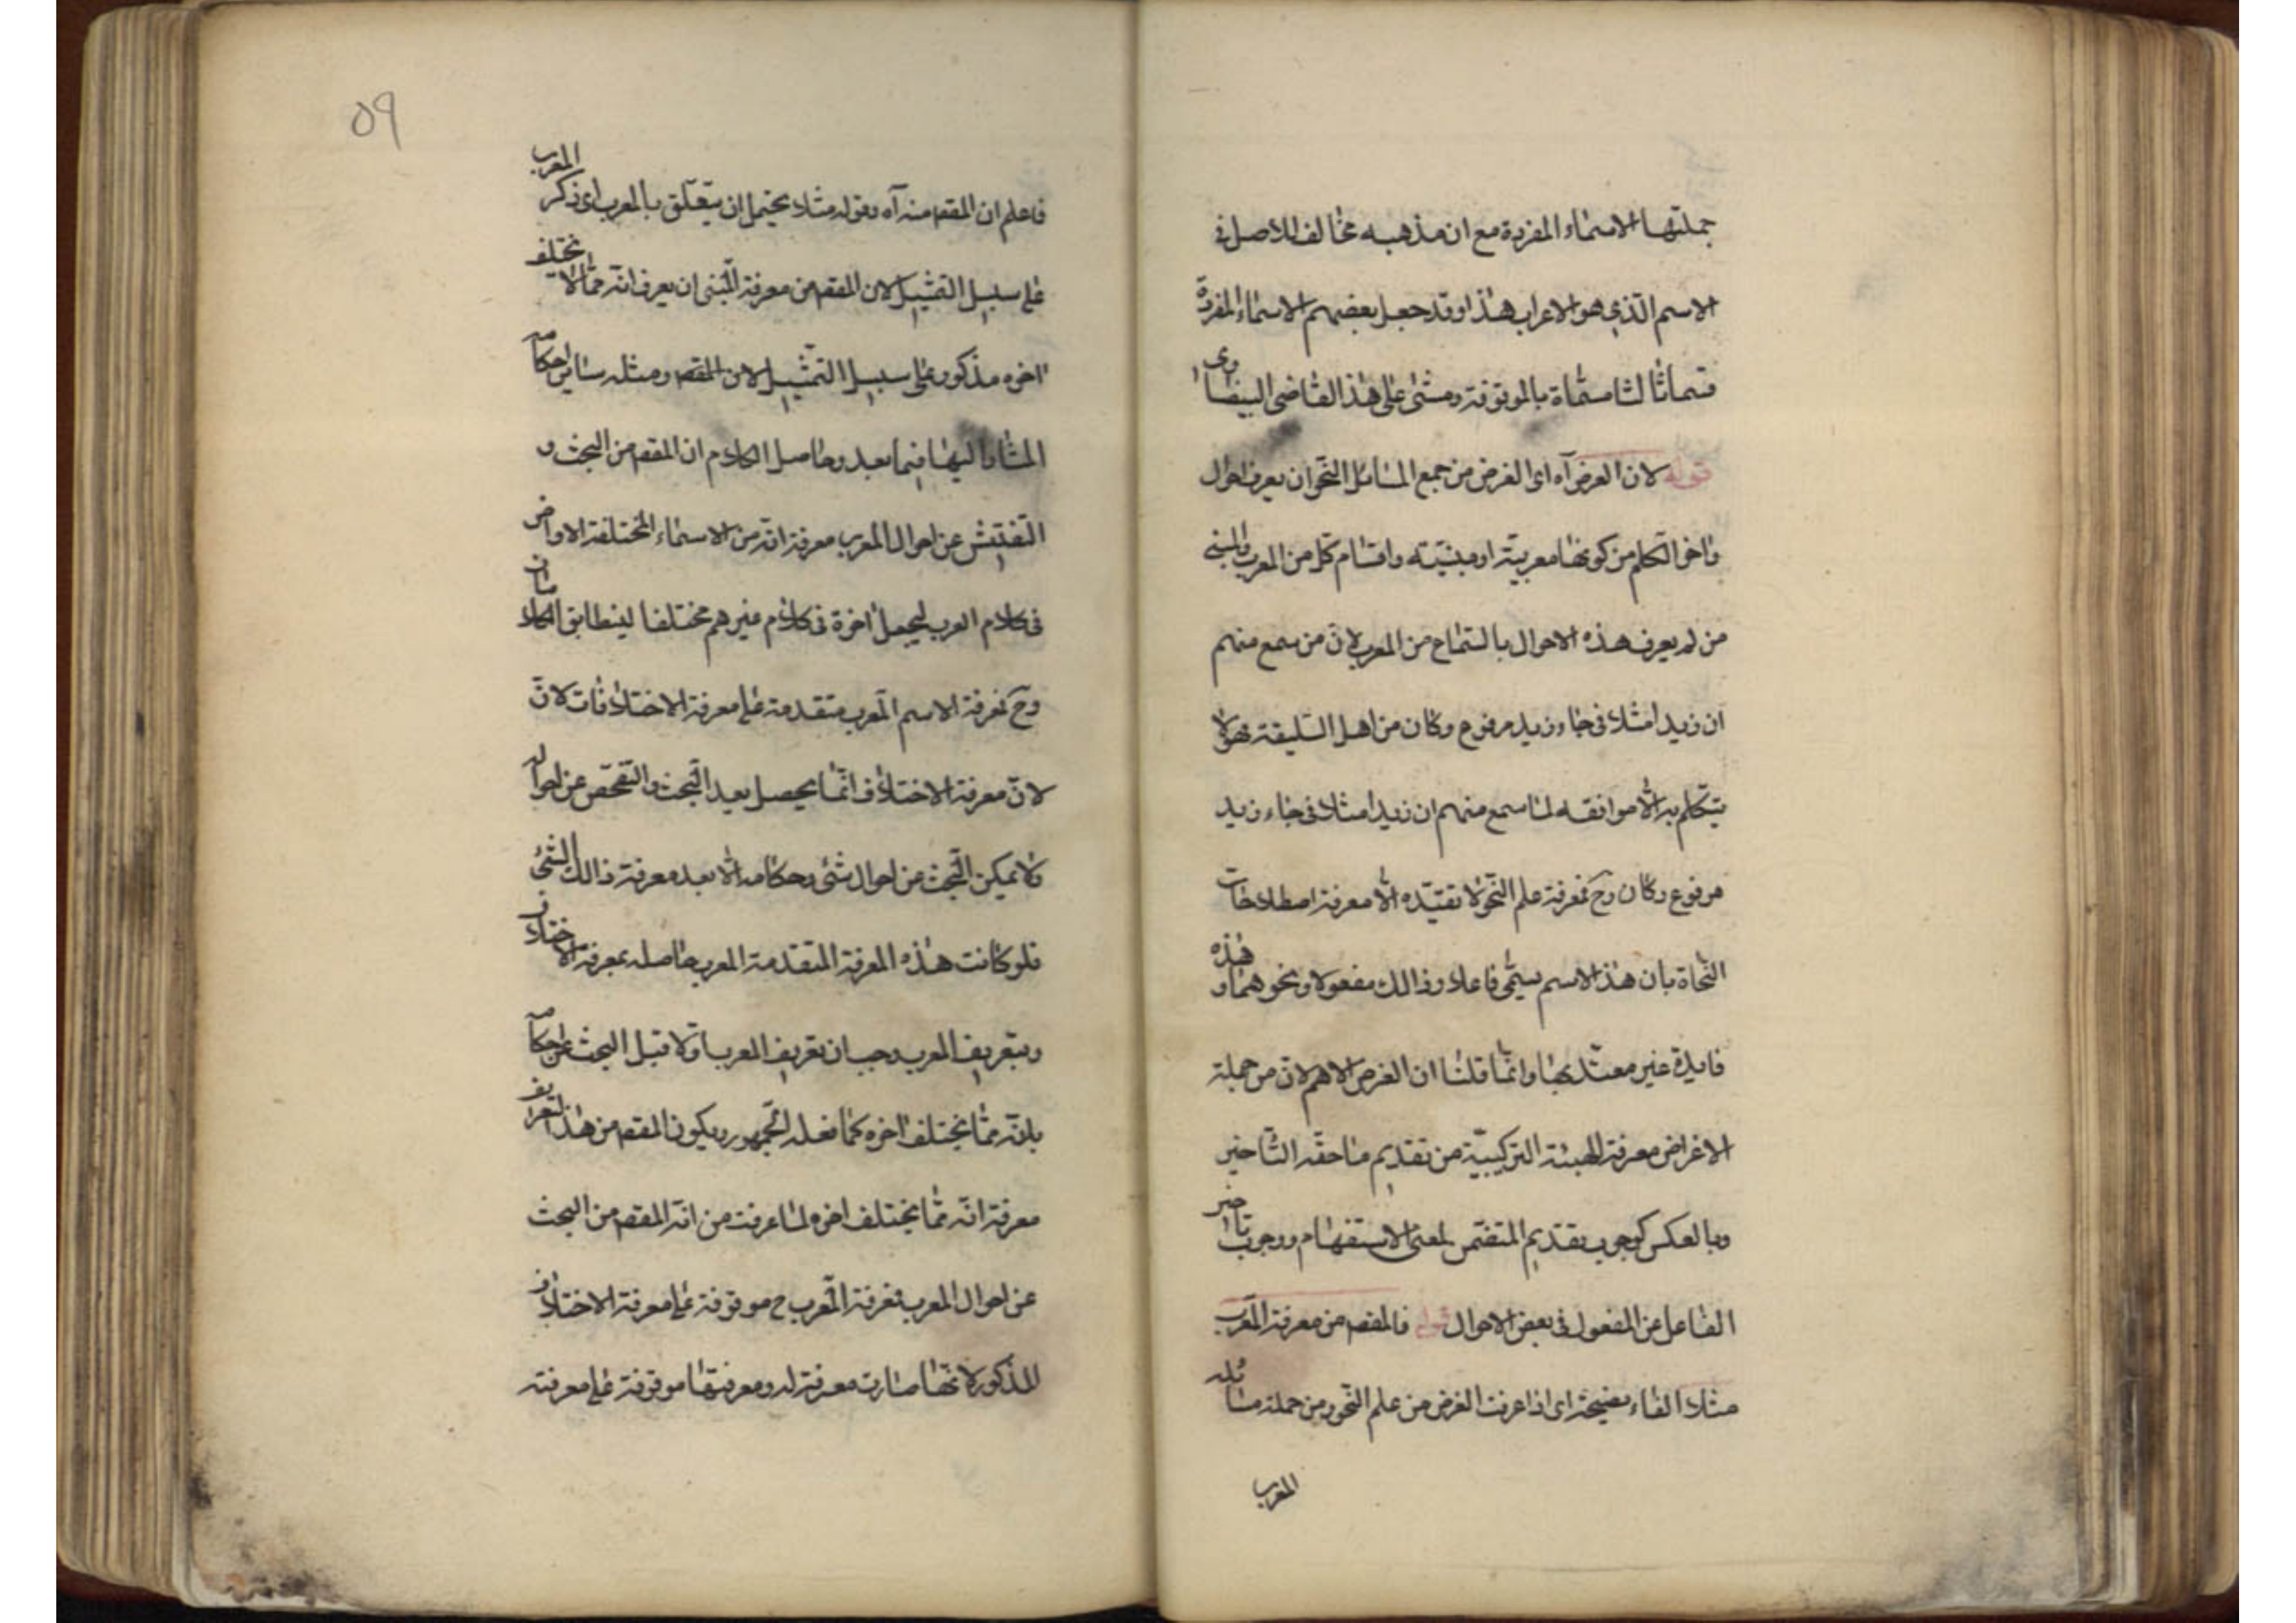 جملتها الاسماء المفردة مع ان مذهبه مخالف للاصل في
الاسم الذي هو الاعراب هذا وقد جعل بعضهم الاسماء المفردة
قسما ثالثا مسماة بالموقوفة ومشى على هذا القاضى البيضاوى
قوله لان الغرض آه اى الغرض من جمع المسائل النحو ان يعرف احوال
واخر الكلم من كونها معربية او مبنيته واقسام كل من المعرب والمبنى
من لم يعرف هذه الاحوال بالسماع من العرب لان من سمع منهم
ان زيدا مثلا فى جاء زيد مرفوع وكان من اهل السليقة فهو لا
يتكلم به الا موافقه لما سمع منهم ان زيدا مثلا فى جاء زيد
مرفوع وكان وح فمعرفة علم النحو لا تفيده الا معرفة اصطلاحات
النحاة بان هذا الاسم يسمى فاعلا وذالك مفعولا ونحوهما و هذه
فايدة غير معتد بها وانما قلنا ان الغرض الاهم لان من جملة
الاغراض معرفة الهيئة التركيبية من تقديم ما حقه التاخير
وبالعكس كوجوب تقديم المتضمن لمعنى الاستفهام ووجوب تاخير
الفاعل عن المفعول فى بعض الاحوال قوله فالمقصم من معرفة المعرب
مثلا الفاء فصيحة اى اذا عرفت الغرض من علم النحو ومن جملة مسائله
المعرب
٥٩
المعرب
فاعلم ان المقصم منه آه وقوله مثلا يحتمل ان يتعلق بالمعرب اى ذكر
على سبيل التمثيل لان المقصم من معرفة المبنى ان يعرف انه مما لا يختلف
اخره مذكور على سبيل التمثيل لان المقصم ومثله ساير احكامه
المشار اليها فيما بعد وحاصل الكلام ان المقصم من البحث و
التفتيش عن احوال المعرب معرفة انه من الاسماء المختلفة الاواخر
فى كلام العرب ليجعل اخرة فى كلام غيرهم مختلفا ليتطابق الكلامان
وح فمعرفة الاسم المعرب متقدمة على معرفة الاختلافات لان
لان معرفة الاختلاف انما يحصل بعد البحث والتفحص عن احواله
ولا يمكن البحث عن احوال شئ وحكامه الا بعد معرفة ذالك الشئ
فلو كانت هذه المعرفة المتقدمة المعرب حاصله بمعرفة الاختلاف
وبتعريف المعرب وجب ان تعريف المعرب اولا قبل البحث عن احكامه
بانه مما يختلف اخره كما فعله الجمهور ويكون المقصم من هذا التعريف
معرفة انه مما يختلف اخره لما عرفت من انه المقصم من البحث
عن احوال المعرب فمعرفة المعرب ح موقوفة على معرفة الاختلاف
المذكور لانها صارت معرفة له ومعرفتها موقوفة على معرفته